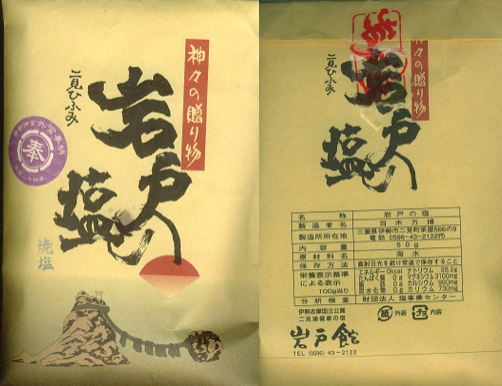 神々の贈り物
二見ひふみ
岩戸の塩
奉
焼塩
神々の贈り物
二見ひふみ
岩戸の塩
名 称 岩戸の塩
製造者名 百木万博
製造所所在地 三重県伊勢市二見町茶屋566の9
電話 0596-43-2122㈹
内容量 50g
原材料名 海水
保存方法 直射日光を避け常温で保存すること
栄養表示基準による表示 100g当り
エネルギー 0kcal ナトリウム 28.2g
たんぱく質 0g マグネシウム 3100mg
脂質 0g カルシウム 960mg
炭水化物 0g カリウム 730mg
分析検査 財団法人 塩事業センター
伊勢志摩国立公園
二見浦健康の宿
岩戸館
紙 外装 プラ 内装
TEL (0596) 43-2122